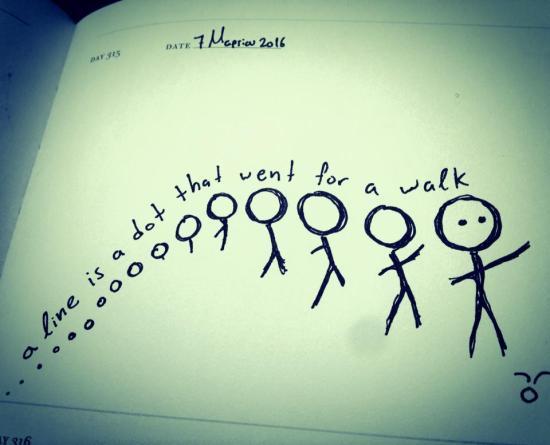 DAY 315
DATE 7 Μαρτίου 2016
a line is a dot that went for a walk